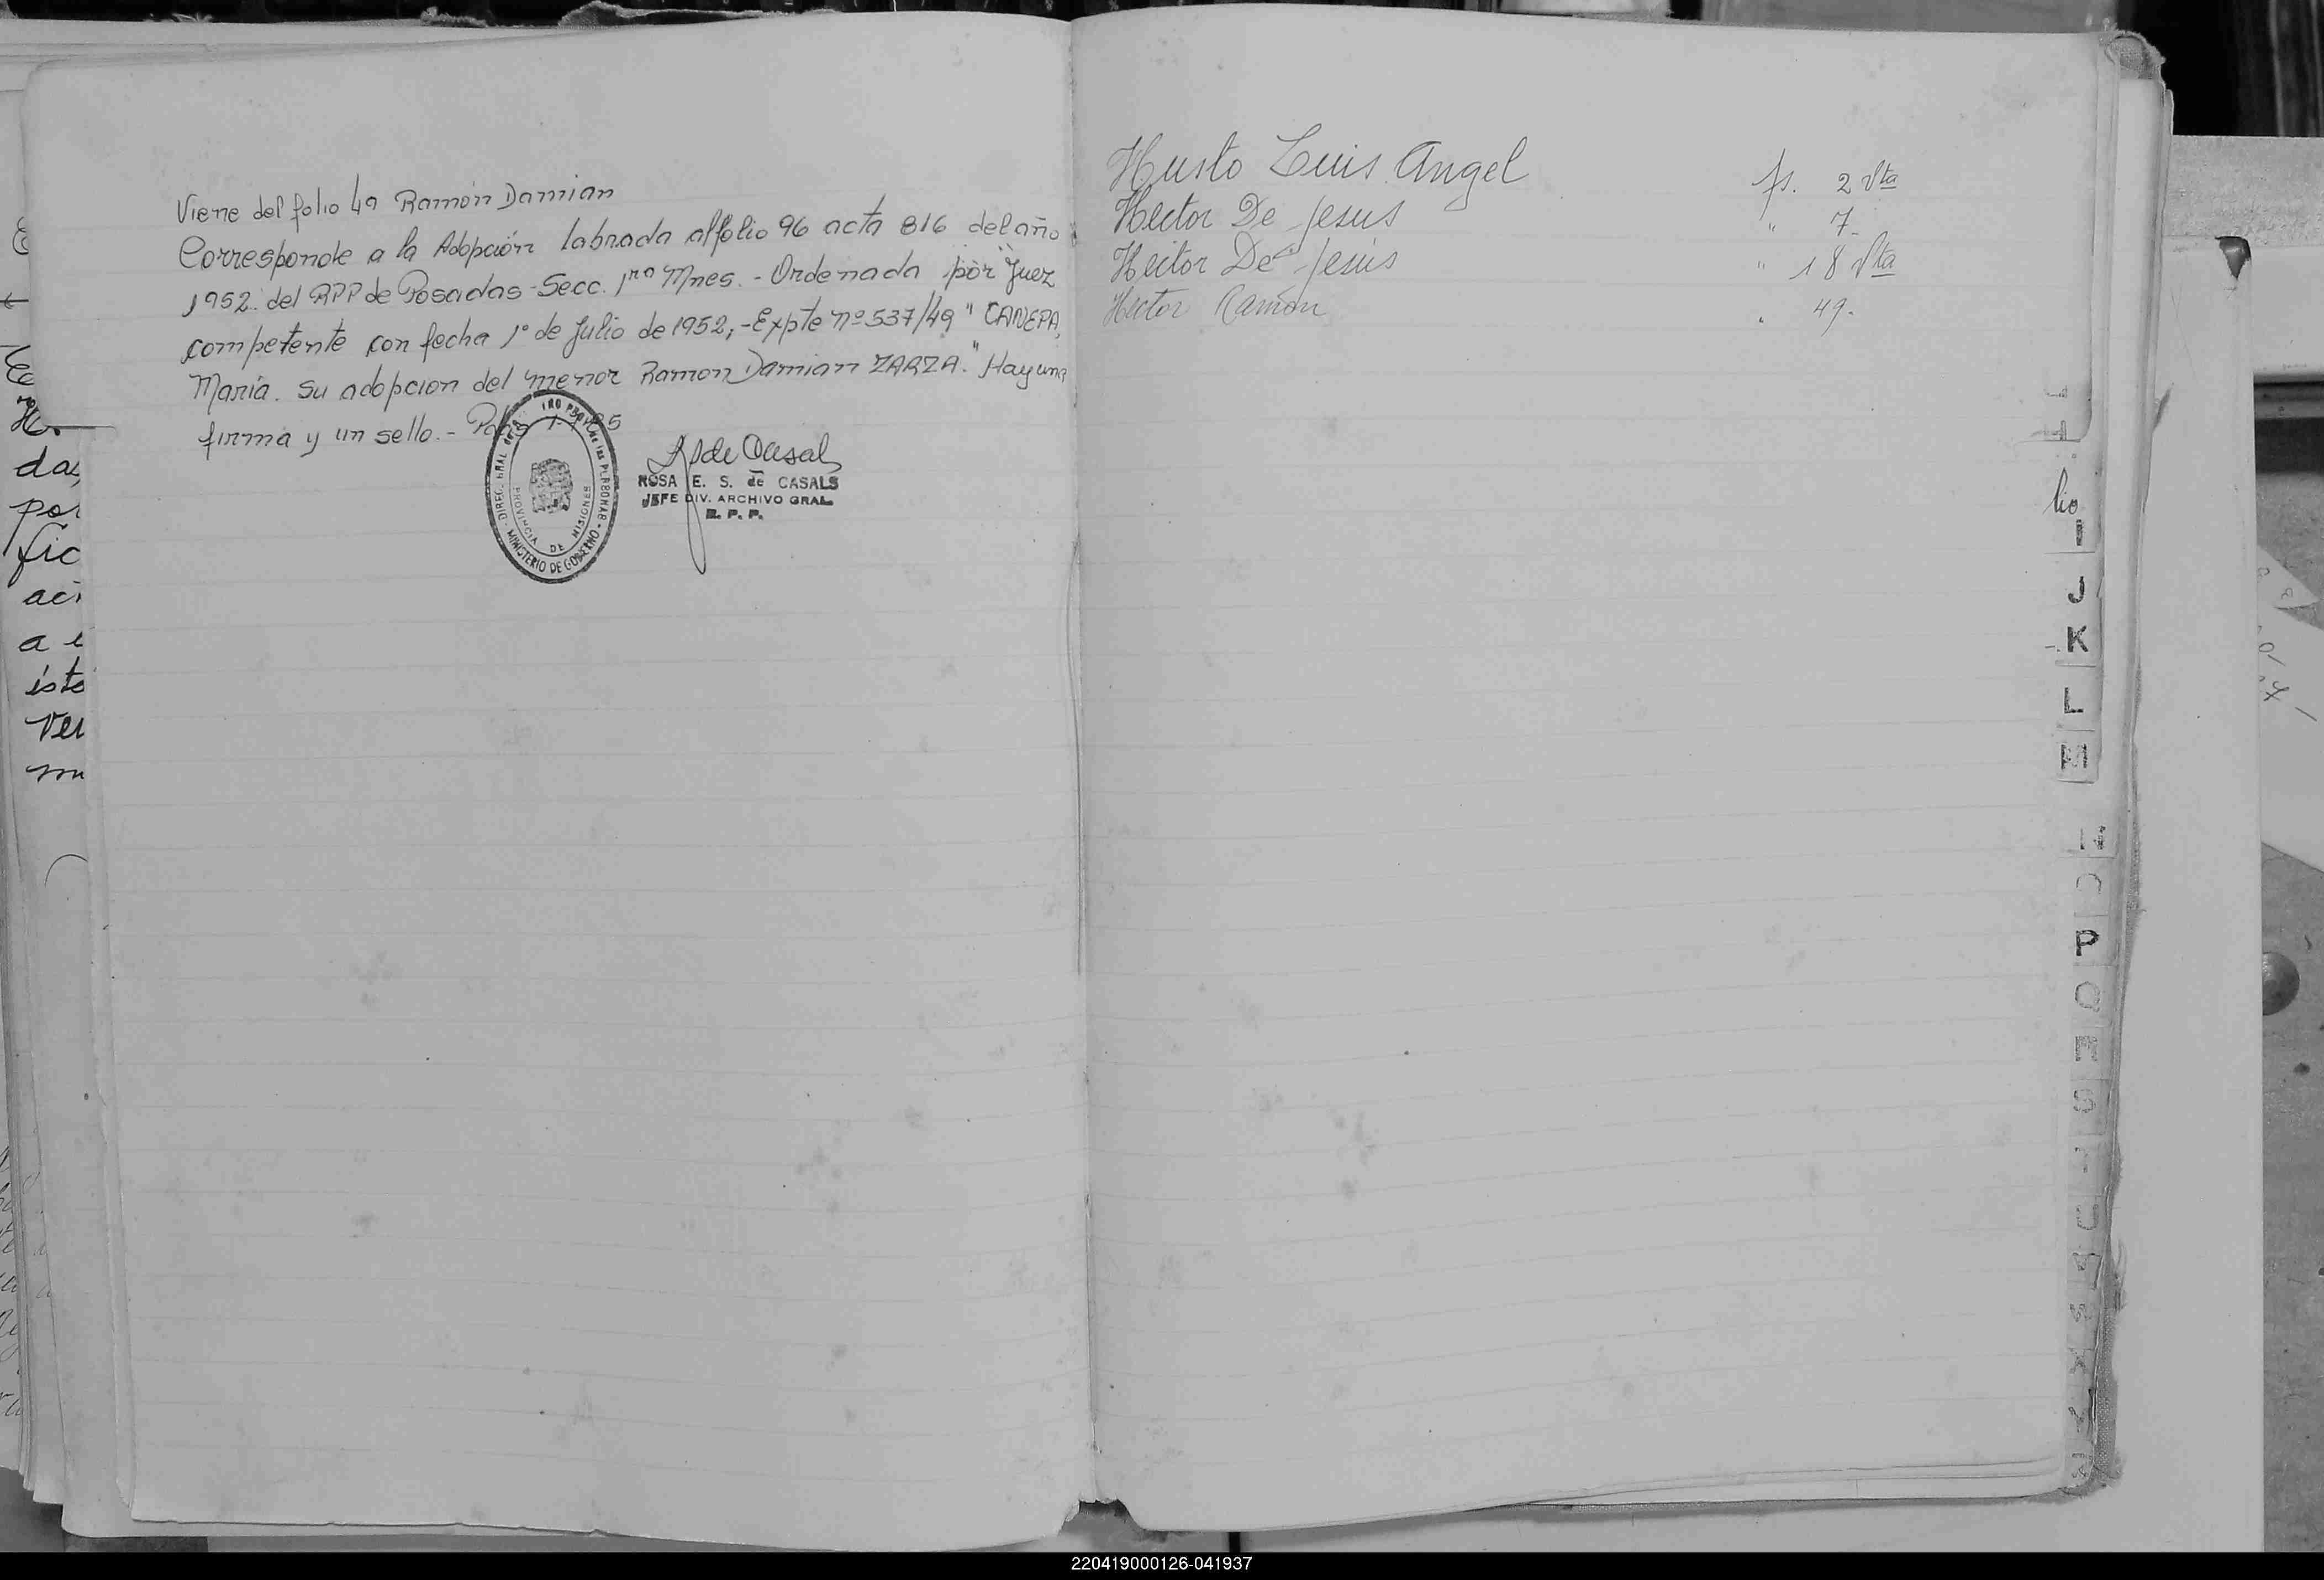 Viene del folio 49 Ramón Damian
Corresponde a la Adopción labrada al folio 96 acta 816 del año
1952. del RPP de Posadas-Secc. 1ra Mnes. - Ordenada por "Juez
competente con fecha 1º de Julio de 1952,- Expte nº 537/49 "CANEPA,
María. su adopcion del menor Ramon Damian ZARZA." Hay una
firma y un sello.-
PROVINCIA DE MISIONES
MINISTERIO DE GOBIERNO
ROSA E. S. de CASALS
JEFE DIV. ARCHIVO GRAL.
R. P. P.
Husto Luis Angel fs. 2 Vta
Hector De Jesus " 7.
Hector De Jesús " 18 Vta
Hector Ramón . 49.
lio
I
J
K
L
M
P
Q
das,
por
fic
a
ver
220419000126-041937